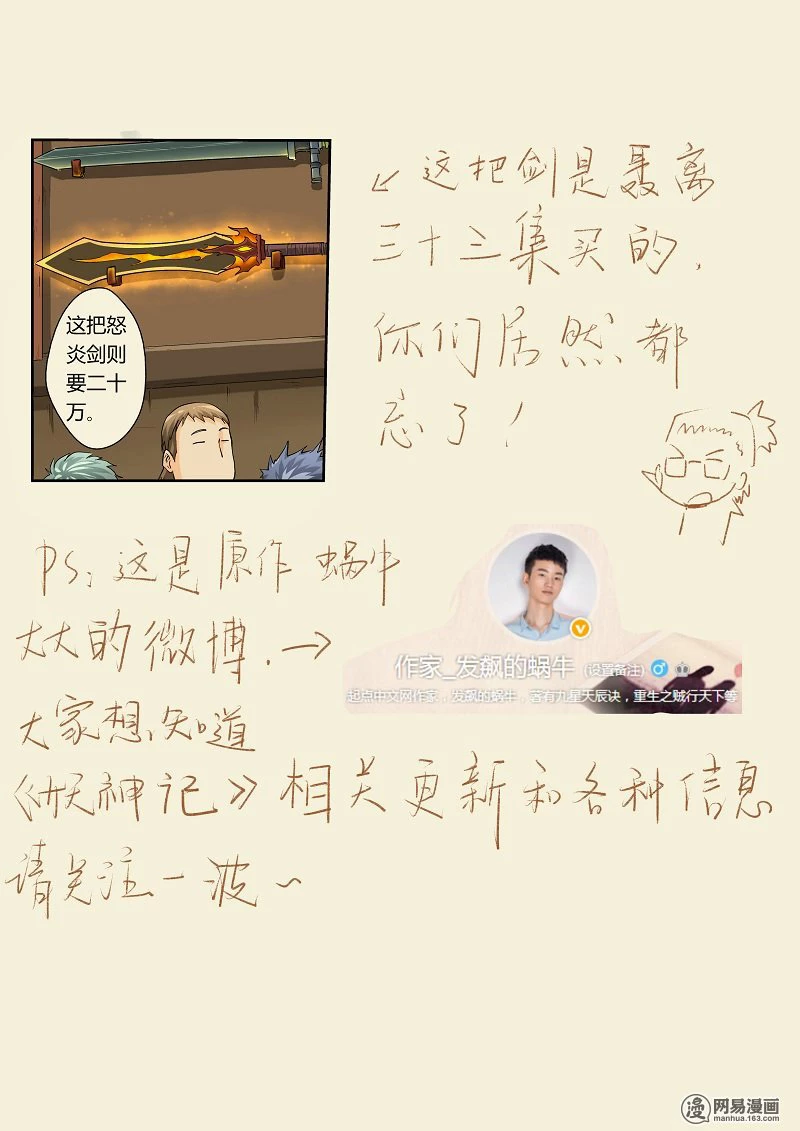 这把怒
炎剑则
要二十
万。
↙这把剑是聂离
三十三集买的,
你们居然都
忘了!
PS:这是原作 蜗牛
大大的微博.→
作家_发飙的蜗牛 (设置备注)
起点中文网作家,发飙的蜗牛,著有九星天辰诀,重生之贼行天下等
大家想知道
《妖神记》相关更新和各种信息
请关注一波~
漫 网易漫画
manhua.163.com